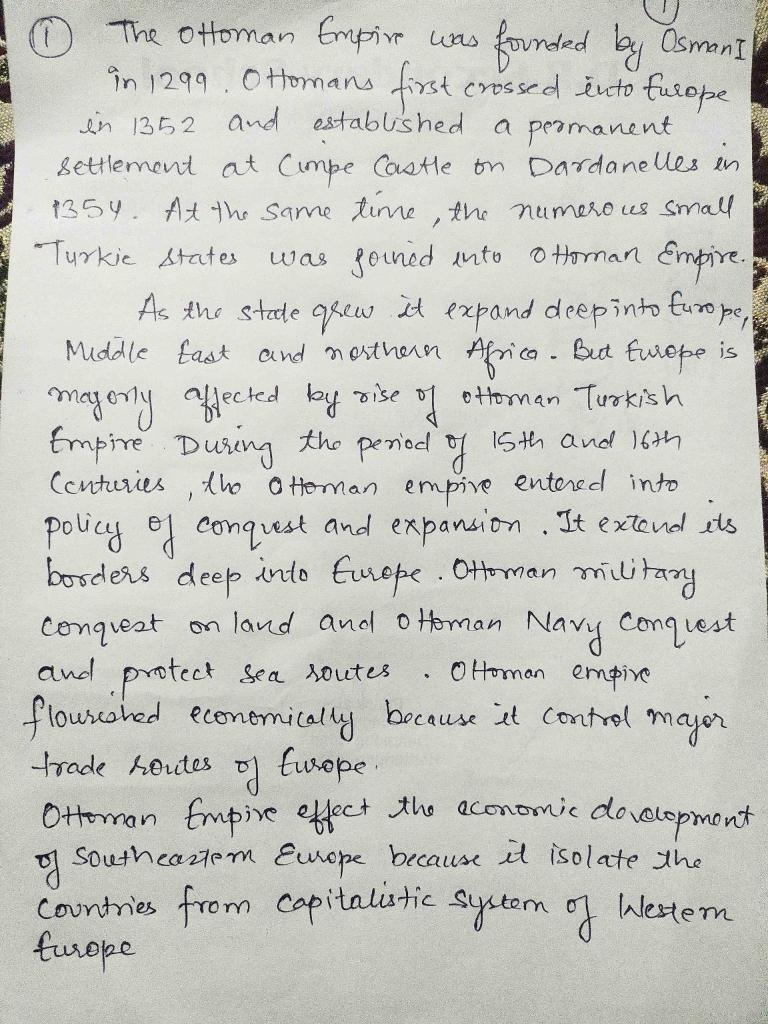 1
① The Ottoman Empire was founded by Osman I
in 1299. Ottomans first crossed into Europe
in 1352 and established a permanent
settlement at Cimpe Castle on Dardanelles in
1354. At the same time, the numerous small
Turkic states was joined into Ottoman Empire.
As the state grew it expand deep into Europe,
Middle East and northern Africa. But Europe is
majorly affected by rise of Ottoman Turkish
Empire. During the period of 15th and 16th
Centuries, the Ottoman empire entered into
policy of conquest and expansion. It extend its
borders deep into Europe. Ottoman military
conquest on land and Ottoman Navy Conquest
and protect sea routes. Ottoman empire
flourished economically because it control major
trade routes of Europe.
Ottoman Empire effect the economic development
of Southeastern Europe because it isolate the
Countries from capitalistic system of Western
Europe